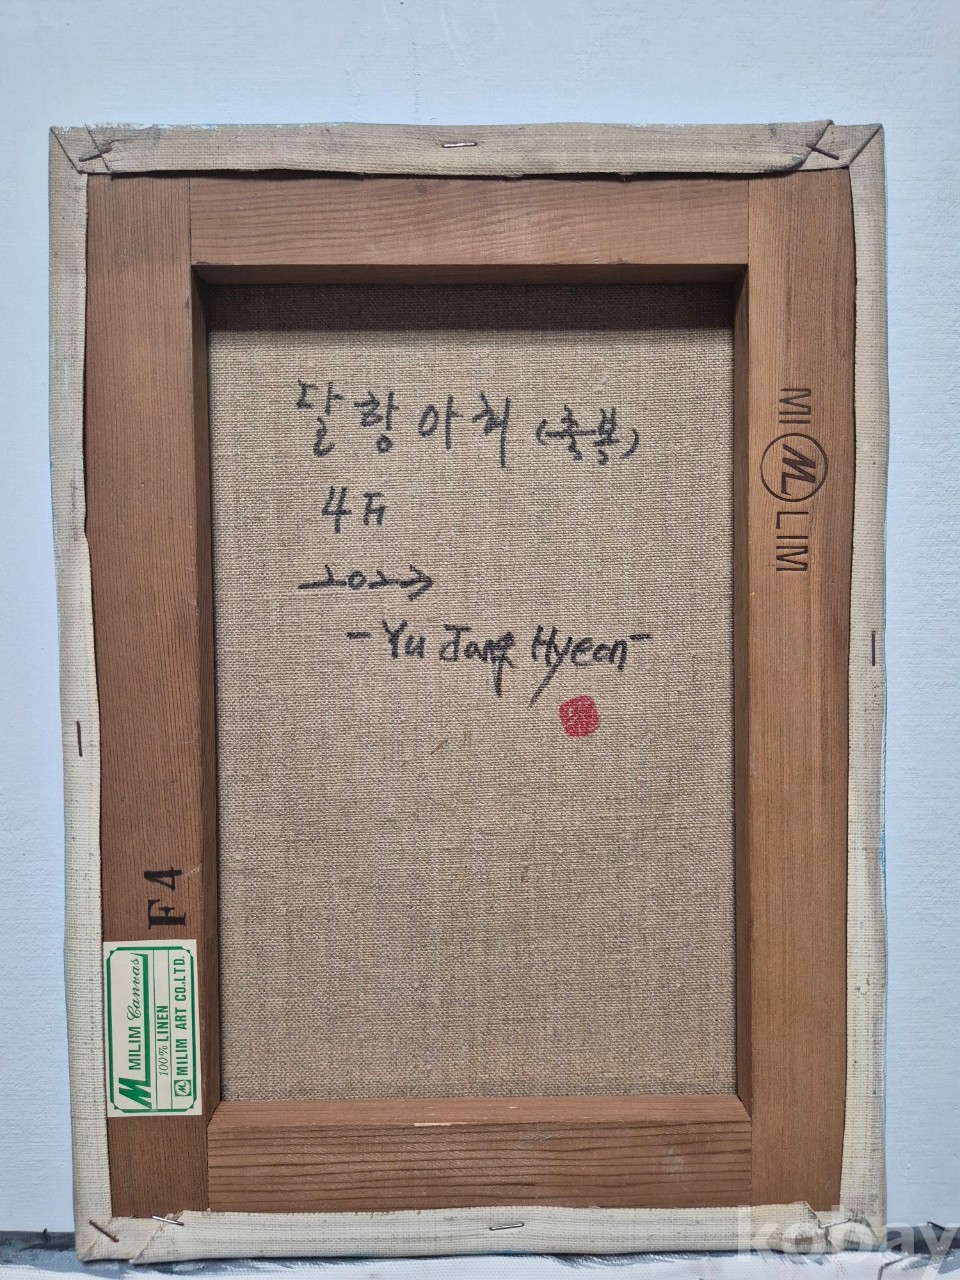 달항아리 (축복)
4F
-Yu Jang Hyeon-
MI M LIM
F4
MILIM Canvas
100% LINEN
MILIM ART CO.,LTD.
kobay